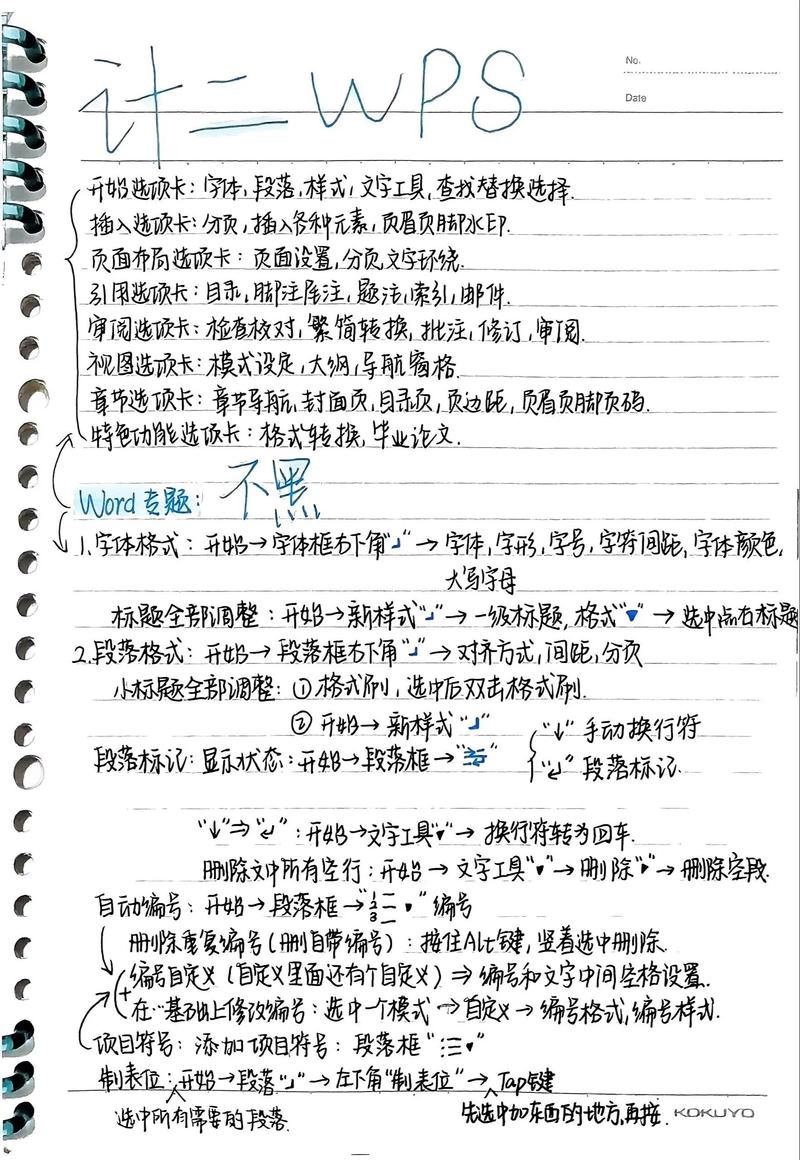 计二 WPS
No.
Date
开始选项卡：字体，段落，样式，文字工具，查找替换选择.
插入选项卡：分页，插入各种元素，页眉页脚水印.
页面布局选项卡：页面设置，分页，文字环绕.
引用选项卡：目录，脚注尾注，题注，索引，邮件.
审阅选项卡：检查校对，繁简转换，批注，修订，审阅.
视图选项卡：模式设定，大纲，导航窗格.
章节选项卡：章节导航，封面页，目录页，页边距，页眉页脚页码.
特色功能选项卡：格式转换，毕业论文.
Word专题：不黑
1.字体格式：开始→字体框右下角“⌟”→字体，字形，字号，字符间距，字体颜色，
大写字母
标题全部调整：开始→新样式“⌟”→一级标题，格式“▼”→选中点右标题
2.段落格式：开始→段落框右下角“⌟”→对齐方式，间距，分页
小标题全部调整：①格式刷，选中后双击格式刷.
②开始→新样式“⌟”
“↓”手动换行符
段落标记：显示状态：开始→段落框→“”
“↵”段落标记.
“↓”⇒“↵”：开始→文字工具“▼”→换行符转为回车.
删除文中所有空行：开始→文字工具“▼”→删除“▼”→删除空段.
自动编号：开始→段落框→“▼”编号
删除重复编号（删自带编号）：按住Alt键，竖着选中删除.
编号自定义（自定义里面还有个自定义）⇒编号和文字中间空格设置.
+
在…基础上修改编号：选中一个模式→自定义→编号格式，编号样式.
项目符号：添加项目符号：段落框“▼”
制表位：开始→段落“⌟”→左下角“制表位”→Tap键
选中所有需要的段落.
先选中加东西的地方，再按.
KOKUYO